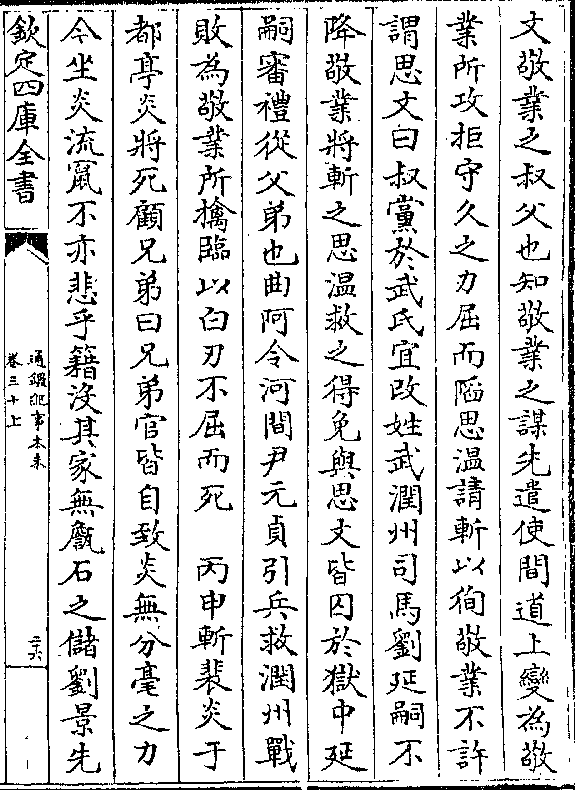 文敬業之叔父也知敬業之謀先遣使間道上變為敬
業所攻拒守久之力屈而陷思温請斬以徇敬業不許
謂思文曰叔黨於武氏宜改姓武潤州司馬劉延嗣不
降敬業將斬之思温救之得免與思文皆囚於獄中延
嗣審禮從父弟也曲阿令河間尹元貞引兵救潤州戰
敗為敬業所擒臨以白刃不屈而死　丙申斬裴炎于
都亭炎將死顧兄弟曰兄弟官皆自致炎無分毫之力
今坐炎流竄不亦悲乎籍沒其家無甔石之儲劉景先
欽定四庫全書
通鑑紀事本末
卷三十上
二六